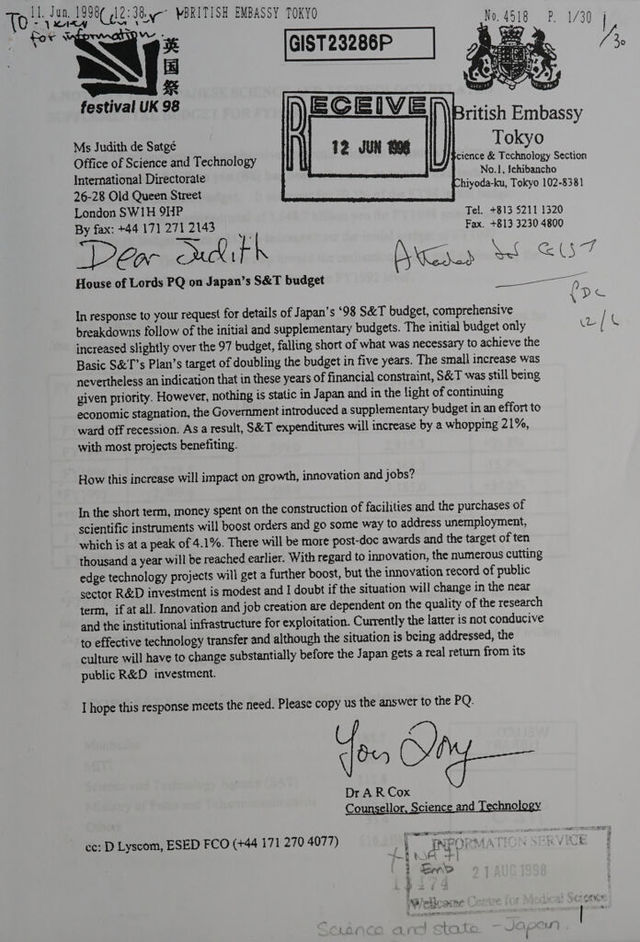 11. Jun. 1998 12:38 BRITISH EMBASSY TOKYO No. 4518 P. 1/30
TO
for information.
1/30
GIST23286P
英国祭
festival UK 98
RECEIVED
12 JUN 1998
British Embassy
Tokyo
Science & Technology Section
No.1, Ichibancho
Chiyoda-ku, Tokyo 102-8381
Tel. +813 5211 1320
Fax. +813 3230 4800
Ms Judith de Satgé
Office of Science and Technology
International Directorate
26-28 Old Queen Street
London SW1H 9HP
By fax: +44 171 271 2143
Dear Judith
Attached for GIST
PDC
12/6
House of Lords PQ on Japan's S&T budget
In response to your request for details of Japan's '98 S&T budget, comprehensive
breakdowns follow of the initial and supplementary budgets. The initial budget only
increased slightly over the 97 budget, falling short of what was necessary to achieve the
Basic S&T's Plan's target of doubling the budget in five years. The small increase was
nevertheless an indication that in these years of financial constraint, S&T was still being
given priority. However, nothing is static in Japan and in the light of continuing
economic stagnation, the Government introduced a supplementary budget in an effort to
ward off recession. As a result, S&T expenditures will increase by a whopping 21%,
with most projects benefiting.
How this increase will impact on growth, innovation and jobs?
In the short term, money spent on the construction of facilities and the purchases of
scientific instruments will boost orders and go some way to address unemployment,
which is at a peak of 4.1%. There will be more post-doc awards and the target of ten
thousand a year will be reached earlier. With regard to innovation, the numerous cutting
edge technology projects will get a further boost, but the innovation record of public
sector R&D investment is modest and I doubt if the situation will change in the near
term, if at all. Innovation and job creation are dependent on the quality of the research
and the institutional infrastructure for exploitation. Currently the latter is not conducive
to effective technology transfer and although the situation is being addressed, the
culture will have to change substantially before the Japan gets a real return from its
public R&D investment.
I hope this response meets the need. Please copy us the answer to the PQ.
Yours Tony
Dr A R Cox
Counsellor, Science and Technology
cc: D Lyscom, ESED FCO (+44 171 270 4077)
INFORMATION SERVICE
Emb
21 AUG 1998
13174
Wellcome Centre for Medical Science
Science and state - Japan.